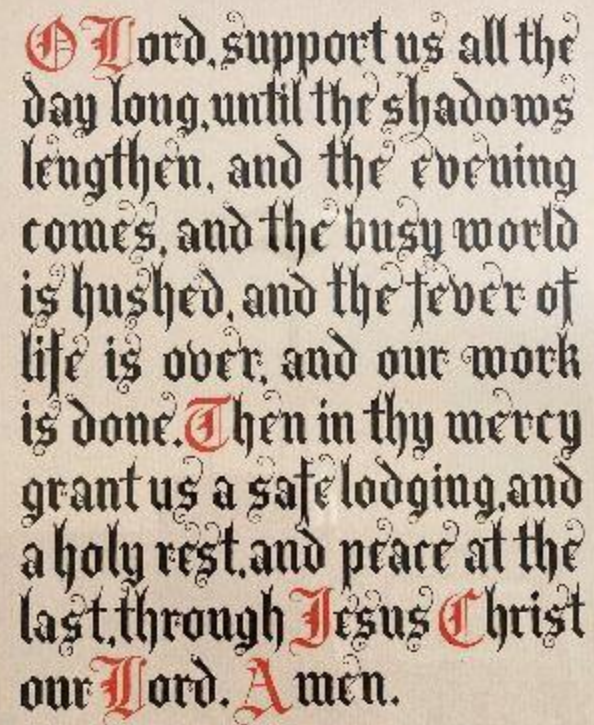 O Lord, support us all the
day long, until the shadows
lengthen, and the evening
comes, and the busy world
is hushed, and the fever of
life is over, and our work
is done. Then in thy mercy
grant us a safe lodging, and
a holy rest, and peace at the
last, through Jesus Christ
our Lord. Amen.